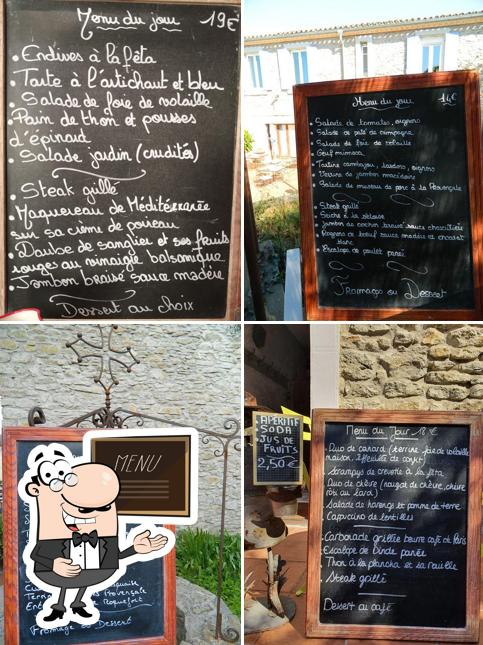 Menu du jour 19€
• Endives à la fêta
Tarte à l'artichaut et bleu
• Salade de foie de volaille
• Pain de thon et pousses
d'épinard
• Salade jardin (crudités)
• Steak grillé
• Maquereau de Méditérranée
sur sa crème de poireau
• Daube de sanglier et ses fruits
rouges au vinaigre balsamique
• Jambon braisé sauce madère
Dessert au choix
Menu du jour 14€
• Salade de tomates, oignons
• Salade de pâté de campagne
• Salade de foie de volaille
• Oeuf mimosa
• Verrine de jambon macédoine
• Salade de museau de porc à la Provençale
• Steak grillé
• Jambon de cochon braisé sauce charcutière
• Rognons de boeuf sauce madère
blanc
• Escalope de poulet panée
Fromages ou Dessert
MENU
Provençale
Roquefort
Fromage ou Dessert
APERITIF
• SODA
• JUS DE
FRUITS
2,50€
Menu du Jour 18€
• Duo de canard (terrine, foie de volaille
maison,
• Scrampys de crevette à la fêta
• Duo de chèvre (nougat de chèvre, chèvre
rôti au lard)
• Salade de harengs et pomme de terre
• Capucino de lentilles
• Carbonade grillée beurre café de Paris
• Escalope de dinde panée
• Thon à la plancha et sa rouille
• Steak grillé
Dessert au café